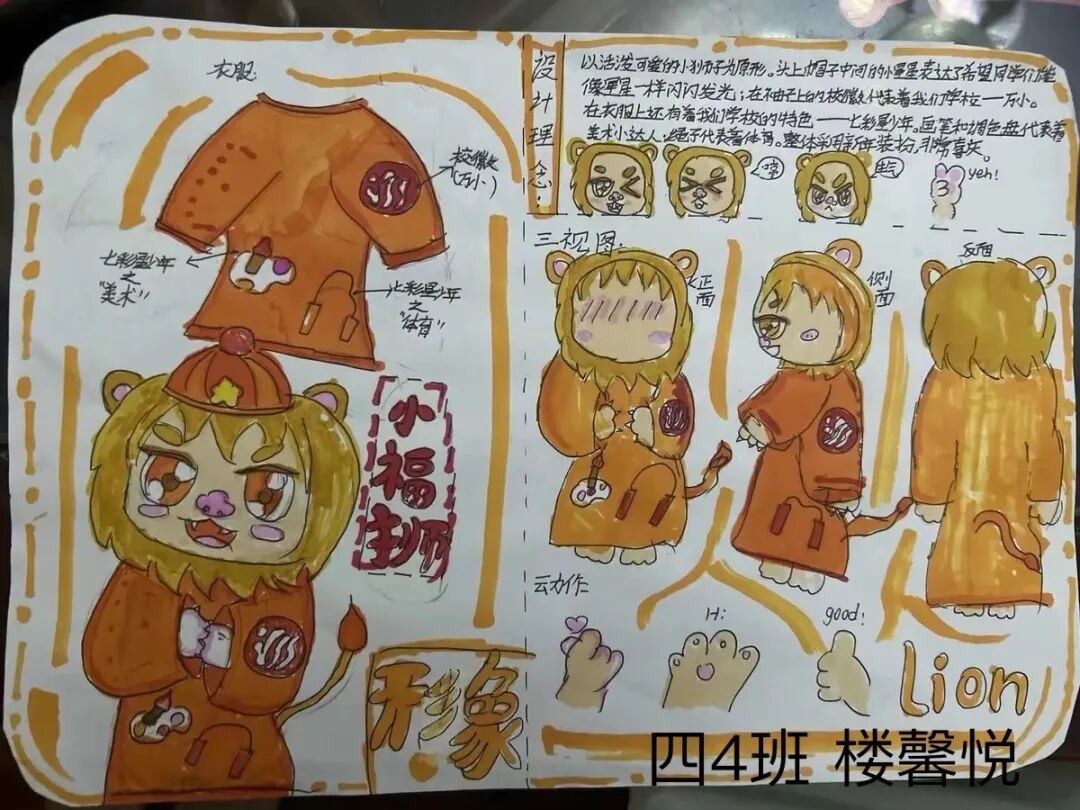 衣服:
校徽
(万小)
七彩星少年
之
"美术"
七彩星少年
之
"体育"
小
福
狮
形象
设计理念:
以活泼可爱的小狮子为原形。头上帽子中间的小星星表达了希望同学们能
像星星一样闪闪发光;在袖子上的校徽代表着我们学校——万小。
在衣服上还有着我们学校的特色——七彩星少年。画笔和调色盘代表着
美术小达人,绳子代表着体育。整体采用新年装扮,非常喜庆。
yeh!
三视图:
正面
侧面
反面
动作:
Hi:
good!
Lion
四4班 楼馨悦